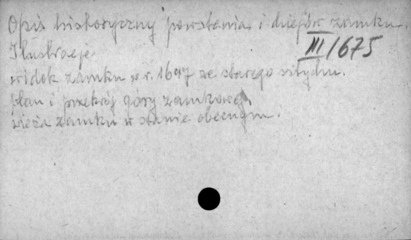 Opis historyczny powstania i dziejów zamku.
III/675
Ilustracje
widok zamku w r. 1697 ze starego sztychu.
plan i przekrój góry zamkowej,
wieża zamku w stanie obecnym.